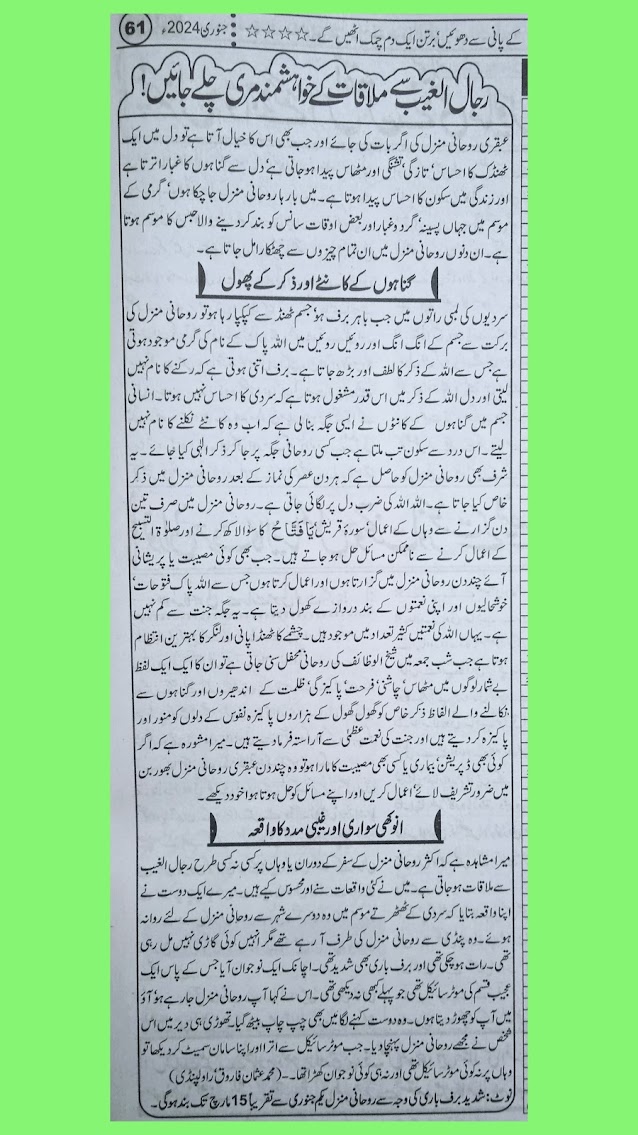 کے پانی سے دھوئیں‘ برتن ایک دم چمک اٹھیں گے۔ ☆☆☆☆ جنوری 2024ء 61
رجال الغیب سے ملاقات کے خواہشمند مری چلے جائیں!
عبقری روحانی منزل کی اگر بات کی جائے اور جب بھی اس کا خیال آتا ہے تو دل میں ایک
ٹھنڈک کا احساس‘ تازگی‘ تشنگی اور مٹھاس پیدا ہوجاتی ہے‘ دل سے گناہوں کا غبار اترتا ہے
اور زندگی میں سکون کا احساس پیدا ہوتا ہے۔ میں بارہا روحانی منزل جاچکا ہوں‘ گرمی کے
موسم میں جہاں پسینہ‘ گرد و غبار اور بعض اوقات سانس کو بند کردینے والا حبس کا موسم ہوتا
ہے۔ ان دنوں روحانی منزل میں ان تمام چیزوں سے چھٹکارا مل جاتا ہے۔
گناہوں کے کانٹے اور ذکر کے پھول
سردیوں کی لمبی راتوں میں جب باہر برف ہو‘ جسم ٹھنڈ سے کپکپا رہا ہو تو روحانی منزل کی
برکت سے جسم کے انگ انگ اور روئیں روئیں میں اللہ پاک کے نام کی گرمی موجود ہوتی
ہے جس سے اللہ کے ذکر کا لطف اور بڑھ جاتا ہے۔ برف اتنی ہوتی ہے کہ رکنے کا نام نہیں
لیتی اور دل اللہ کے ذکر میں اس قدر مشغول ہوتا ہے کہ سردی کا احساس نہیں ہوتا۔ انسانی
جسم میں گناہوں کے کانٹوں نے ایسی جگہ بنالی ہے کہ اب وہ کانٹے نکلنے کا نام نہیں
لیتے۔ اس درد سے سکون تب ملتا ہے جب کسی روحانی جگہ پر جاکر ذکر الٰہی کیا جائے۔ یہ
شرف بھی روحانی منزل کو حاصل ہے کہ ہر دن عصر کی نماز کے بعد روحانی منزل میں ذکر
خاص کیا جاتا ہے۔ اللہ اللہ کی ضرب دل پر لگائی جاتی ہے۔ روحانی منزل میں صرف تین
دن گزارنے سے وہاں کے اعمال‘ سورۂ قریش‘ یَافَتَّاحُ کا سوا لاکھ کرنے اور صلوٰۃ التسبیح
کے اعمال کرنے سے ناممکن مسائل حل ہوجاتے ہیں۔ جب بھی کوئی مصیبت یا پریشانی
آئے چند دن روحانی منزل میں گزارتا ہوں اور اعمال کرتا ہوں جس سے اللہ پاک فتوحات‘
خوشحالیوں اور اپنی نعمتوں کے بند دروازے کھول دیتا ہے۔ یہ جگہ جنت سے کم نہیں
ہے۔ یہاں اللہ کی نعمتیں کثیر تعداد میں موجود ہیں۔ چشمے کا ٹھنڈا پانی اور لنگر کا بہترین انتظام
ہوتا ہے جب شب جمعہ میں شیخ الوظائف کی روحانی محفل سنی جاتی ہے تو ان کا ایک ایک لفظ
بے شمار لوگوں میں مٹھاس‘ چاشنی‘ فرحت‘ پاکیزگی‘ ظلمت کے اندھیروں اور گناہوں سے
نکالنے والے الفاظ ذکر خاص کو گھول گھول کے ہزاروں پاکیزہ نفوس کے دلوں کو منور اور
پاکیزہ کردیتے ہیں اور جنت کی نعمت عظمٰی سے آراستہ فرمادیتے ہیں۔ میرا مشورہ ہے کہ اگر
کوئی بھی ڈپریشن‘ بیماری یا کسی بھی مصیبت کا مارا ہو تو وہ چند دن عبقری روحانی منزل بھوربن
میں ضرور تشریف لائے‘ اعمال کریں اور اپنے مسائل کو حل ہوتا ہوا خود دیکھے۔
انوکھی سواری اور غیبی مدد کا واقعہ
میرا مشاہدہ ہے کہ اکثر روحانی منزل کے سفر کے دوران یا وہاں پر کسی نہ کسی طرح رجال الغیب
سے ملاقات ہوجاتی ہے۔ میں نے کئی واقعات سنے اور محسوس کیے ہیں۔ میرے ایک دوست نے
اپنا واقعہ بتایا کہ سردی کے ٹھٹھرتے موسم میں وہ دوسرے شہر سے روحانی منزل کے لئے روانہ
ہوئے۔ وہ پنڈی سے روحانی منزل کی طرف آرہے تھے مگر انہیں کوئی گاڑی نہیں مل رہی
تھی۔ رات ہوچکی تھی اور برف باری بھی شدید تھی۔ اچانک ایک نوجوان آیا جس کے پاس ایک
عجیب قسم کی موٹر سائیکل تھی جو پہلے کبھی نہ دیکھی تھی۔ اس نے کہا آپ روحانی منزل جارہے ہو‘ آؤ
میں آپ کو چھوڑ دیتا ہوں۔ وہ دوست کہنے لگا میں بھی چپ چاپ بیٹھ گیا۔ تھوڑی ہی دیر میں اس
شخص نے مجھے روحانی منزل پہنچادیا۔ جب موٹر سائیکل سے اترا اور اپنا سامان سمیٹ کر دیکھا تو
وہاں پر نہ کوئی موٹر سائیکل تھی اور نہ ہی کوئی نوجوان کھڑا تھا۔ (محمد عثمان فاروق‘ راولپنڈی)
نوٹ: شدید برف باری کی وجہ سے روحانی منزل یکم جنوری سے تقریباً 15 مارچ تک بند ہوگی۔